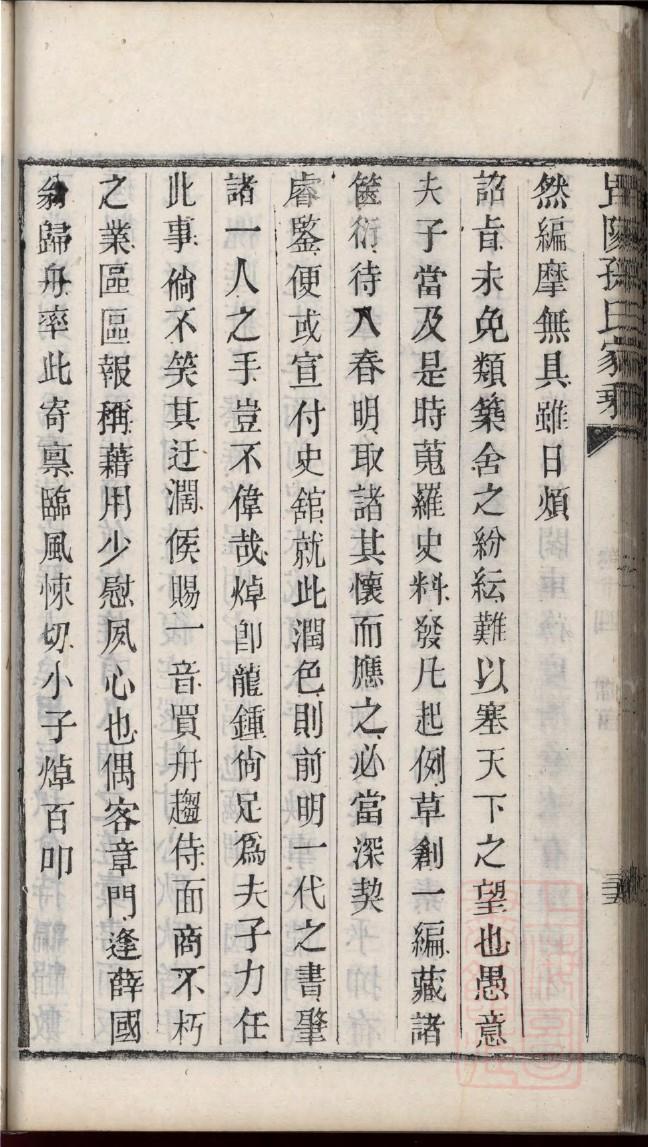 然編摩無具雖日煩
詔旨未免類築舍之紛紜難以塞天下之望也愚意
夫子當及是時蒐羅史料發凡起例草創一編藏諸
篋衍待入春明取諸其懷而應之必當深契
睿鑒便或宣付史舘就此潤色則前明一代之書肇
諸一人之手豈不偉哉焯卽龍鍾尙足爲夫子力任
此事倘不笑其迂濶候賜一音買舟趨侍面商不朽
之業區區報稱藉用少慰夙心也偶客章門逢薛國
叅歸舟率此寄禀臨風悚切小子焯百叩